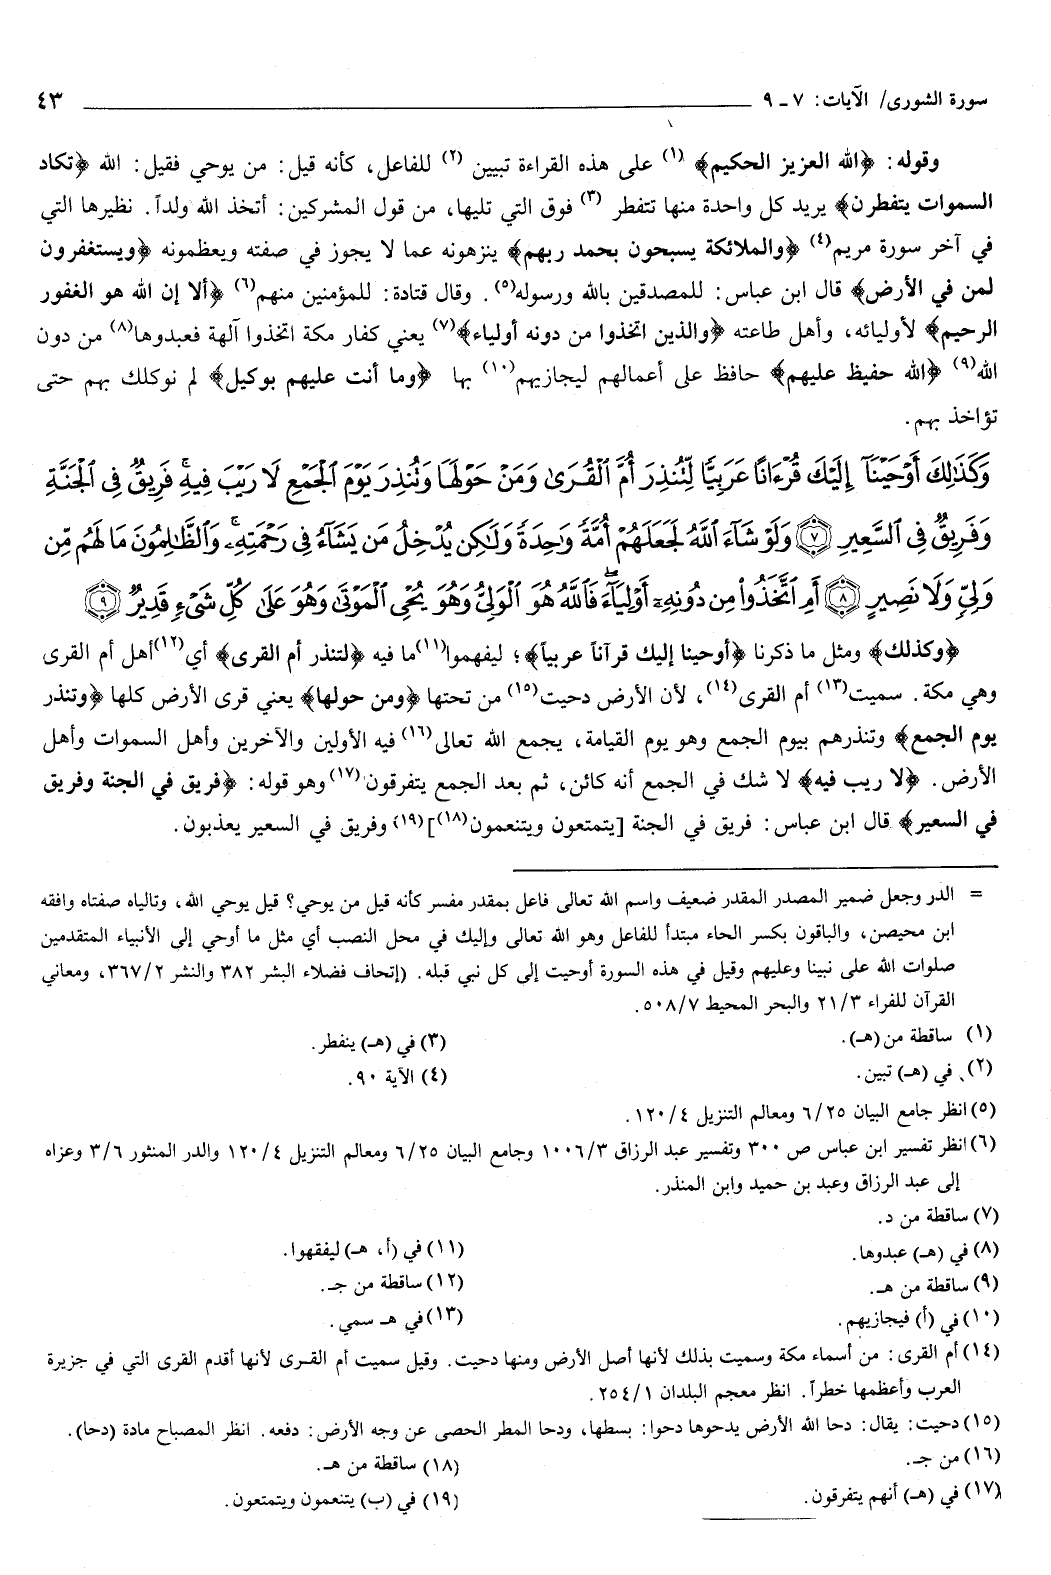 سورة الشورى/ الآيات: ٧ ـ ٩ ٤٣
وقوله: ﴿الله العزيز الحكيم﴾ (١) على هذه القراءة تبيين (٢) للفاعل، كأنه قيل: من يوحي فقيل: الله ﴿تكاد
السموات يتفطرن﴾ يريد كل واحدة منها تتفطر (٣) فوق التي تليها، من قول المشركين: أتخذ الله ولداً. نظيرها التي
في آخر سورة مريم(٤) ﴿والملائكة يسبحون بحمد ربهم﴾ ينزهونه عما لا يجوز في صفته ويعظمونه ﴿ويستغفرون
لمن في الأرض﴾ قال ابن عباس: للمصدقين بالله ورسوله(٥). وقال قتادة: للمؤمنين منهم(٦) ﴿ألا إن الله هو الغفور
الرحيم﴾ لأوليائه، وأهل طاعته ﴿والذين اتخذوا من دونه أولياء﴾(٧) يعني كفار مكة اتخذوا آلهة فعبدوها(٨) من دون
الله(٩) ﴿الله حفيظ عليهم﴾ حافظ على أعمالهم ليجازيهم(١٠) بها ﴿وما أنت عليهم بوكيل﴾ لم نوكلك بهم حتى
تؤاخذ بهم.
وَكَذَٰلِكَ أَوْحَيْنَآ إِلَيْكَ قُرْءَانًا عَرَبِيًّا لِّتُنذِرَ أُمَّ ٱلْقُرَىٰ وَمَنْ حَوْلَهَا وَتُنذِرَ يَوْمَ ٱلْجَمْعِ لَا رَيْبَ فِيهِ ۚ فَرِيقٌ فِى ٱلْجَنَّةِ
وَفَرِيقٌ فِى ٱلسَّعِيرِ ﴿٧﴾ وَلَوْ شَآءَ ٱللَّهُ لَجَعَلَهُمْ أُمَّةً وَٰحِدَةً وَلَٰكِن يُدْخِلُ مَن يَشَآءُ فِى رَحْمَتِهِۦ ۚ وَٱلظَّٰلِمُونَ مَا لَهُم مِّن
وَلِىٍّ وَلَا نَصِيرٍ ﴿٨﴾ أَمِ ٱتَّخَذُوا۟ مِن دُونِهِۦٓ أَوْلِيَآءَ ۖ فَٱللَّهُ هُوَ ٱلْوَلِىُّ وَهُوَ يُحْىِ ٱلْمَوْتَىٰ وَهُوَ عَلَىٰ كُلِّ شَىْءٍ قَدِيرٌ ﴿٩﴾
﴿وكذلك﴾ ومثل ما ذكرنا ﴿أوحينا إليك قرآناً عربياً﴾؛ ليفهموا(١١) ما فيه ﴿لتنذر أم القرى﴾ أي(١٢) أهل أم القرى
وهي مكة. سميت(١٣) أم القرى(١٤)، لأن الأرض دحيت(١٥) من تحتها ﴿ومن حولها﴾ يعني قرى الأرض كلها ﴿وتنذر
يوم الجمع﴾ وتنذرهم بيوم الجمع وهو يوم القيامة، يجمع الله تعالى(١٦) فيه الأولين والآخرين وأهل السموات وأهل
الأرض. ﴿لا ريب فيه﴾ لا شك في الجمع أنه كائن، ثم بعد الجمع يتفرقون(١٧) وهو قوله: ﴿فريق في الجنة وفريق
في السعير﴾ قال ابن عباس: فريق في الجنة [يتمتعون ويتنعمون(١٨)](١٩) وفريق في السعير يعذبون.
= الدر وجعل ضمير المصدر المقدر ضعيف واسم الله تعالى فاعل بمقدر مفسر كأنه قيل من يوحي؟ قيل يوحي الله، وتالياه صفتاه وافقه
ابن محيصن، والباقون بكسر الحاء مبتدأ للفاعل وهو الله تعالى وإليك في محل النصب أي مثل ما أوحي إلى الأنبياء المتقدمين
صلوات الله على نبينا وعليهم وقيل في هذه السورة أوحيت إلى كل نبي قبله. (إتحاف فضلاء البشر ٣٨٢ والنشر ٣٦٧/٢، ومعاني
القرآن للفراء ٢١/٣ والبحر المحيط ٥٠٨/٧.
(١) ساقطة من (هـ).
(٢) في (هـ) تبين.
(٣) في (هـ) ينفطر.
(٤) الآية ٩٠.
(٥) انظر جامع البيان ٦/٢٥ ومعالم التنزيل ١٢٠/٤.
(٦) انظر تفسير ابن عباس ص ٣٠٠ وتفسير عبد الرزاق ١٠٠٦/٣ وجامع البيان ٦/٢٥ ومعالم التنزيل ١٢٠/٤ والدر المنثور ٣/٦ وعزاه
إلى عبد الرزاق وعبد بن حميد وابن المنذر.
(٧) ساقطة من د.
(٨) في (هـ) عبدوها.
(٩) ساقطة من هـ.
(١٠) في (أ) فيجازيهم.
(١١) في (أ، هـ) ليفقهوا.
(١٢) ساقطة من جـ.
(١٣) في هـ سمي.
(١٤) أم القرى: من أسماء مكة وسميت بذلك لأنها أصل الأرض ومنها دحيت. وقيل سميت أم القـرى لأنها أقدم القرى التي في جزيرة
العرب وأعظمها خطراً. انظر معجم البلدان ٢٥٤/١.
(١٥) دحيت: يقال: دحا الله الأرض يدحوها دحوا: بسطها، ودحا المطر الحصى عن وجه الأرض: دفعه. انظر المصباح مادة (دحا).
(١٦) من جـ.
(١٧) في (هـ) أنهم يتفرقون.
(١٨) ساقطة من هـ.
(١٩) في (ب) يتنعمون ويتمتعون.